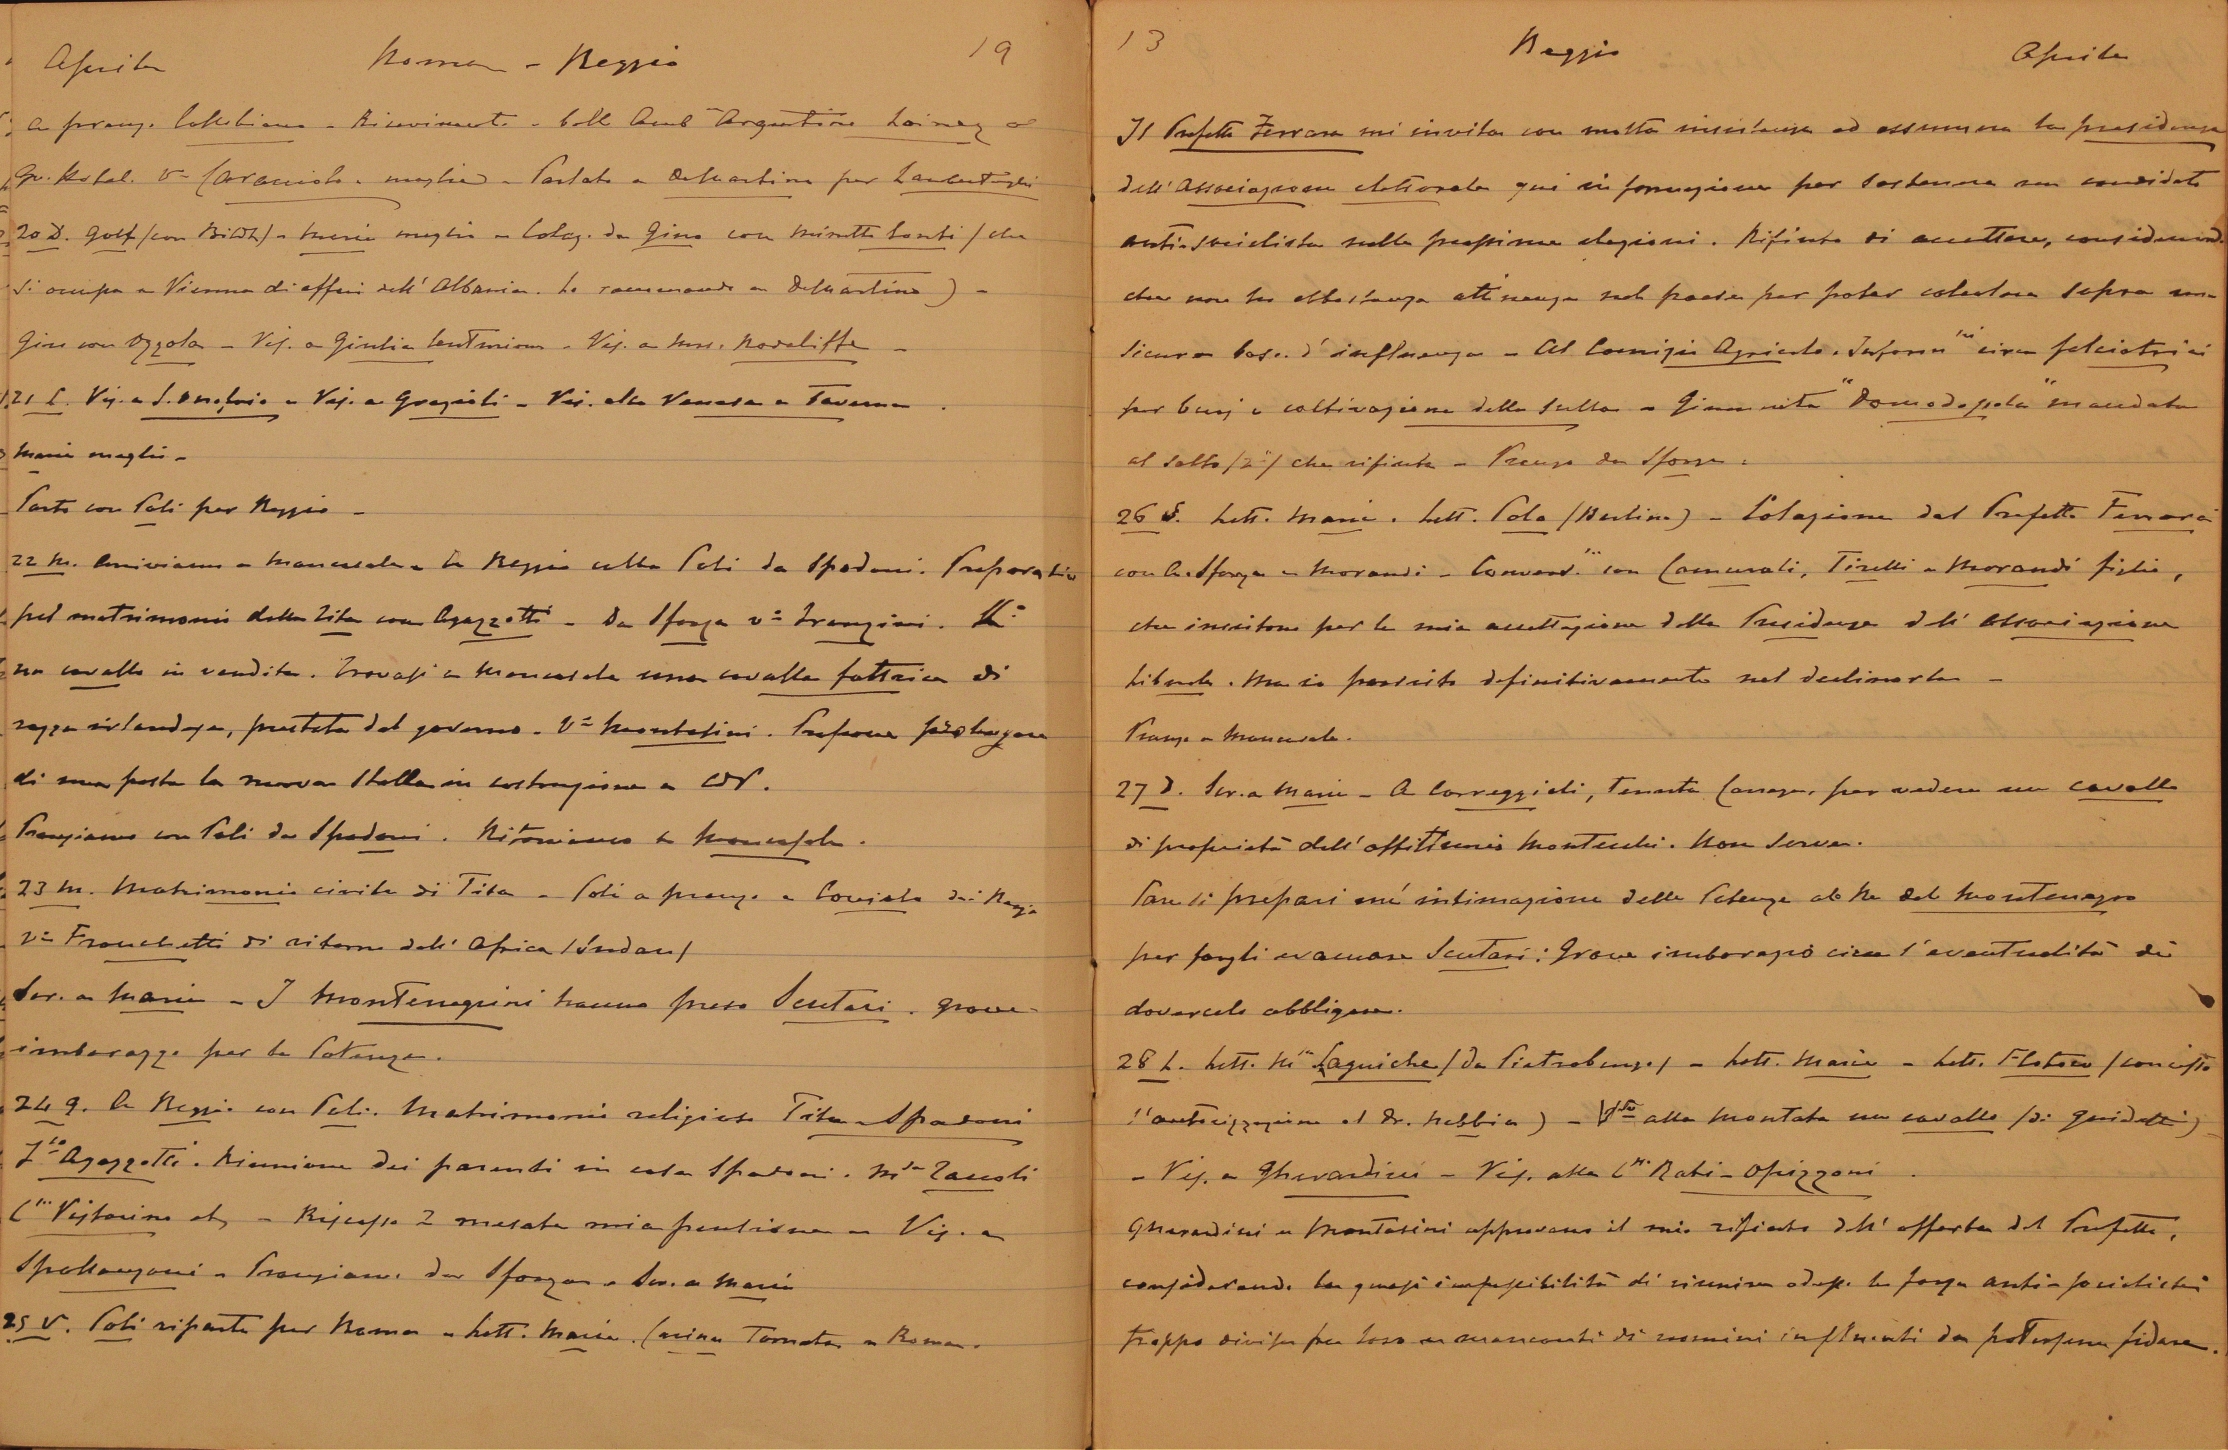 Aprile Roma - Reggio 19
a pranzo - Ricevimento - Amb Argentino Lainez al
Gr. Hotel. V= - moglie - Parlato a DeMartino per
20 D. Golf / con Bildt / - Maria meglio - Colaz. da Gino con / che
si occupa a Vienna di affari dell' Albania. Lo raccomando a DeMartino ) -
Giro con Ozzola - Vis. a Giulia - Vis. a -
21 L. Vis. a S. Onofrio - Vis. a Grazioli - Vis. alla a Taverna .
Maria meglio -
Parto con Poli per Reggio -
22 M. Arriviamo a Mancasale - A Reggio colla Poli da Spadoni. Preparativi
pel matrimonio della Tita con Agazzotti - Da Sforza v= Franzini.
un cavallo in vendita. Trovasi a Mancasale una cavalla fattrice di
razza irlandese, prestata dal governo. V= Montasini. Propone
di una posta la nuova stalla in costruzione a
Pranziamo con Poli da Spadoni. Ritorniamo a Mancasale.
23 M. Matrimonio civile di Tita - Poli a pranzo a
v= Franchetti di ritorno dall' Africa / Sudan /
Scr. a Maria - I Montenegrini hanno preso Scutari. Grave
imbarazzo per le Potenze.
24 G. A Reggio con Poli. Matrimonio religioso Tita Spadoni
Agazzotti. Riunione dei parenti in casa Spadoni. Zaccoli
- Riscosso 2 mesate mia pensione - Vis. a
Spallanzani - Pranziamo da Sforza - Scr. a Maria
25 V. Poli riparte per Roma - Lett. Maria. Tornata a Roma.
13 Reggio Aprile
Il Prefetto Ferrara mi invita con molta insistenza ad assumere la presidenza
dell' Associazione elettorale qui in formazione per sostenere un candidato
anti-socialista nelle prossime elezioni. Rifiuto di accettare, considerando
che non ho abbastanza attinenze nel paese per poter calcolare sopra una
sicura base d' influenza - Al Comizio Agricolo. Inform.ni circa falciatrici
per buoi e coltivazione della sulla - Giumenta "Domodossola" mandata
al salto / 2° / che rifiuta - Pranzo da Sforza.
26 S. Lett. Maria. Lett. Polo (Berlino) - Colazione dal Prefetto Ferrara
con A. Sforza e Morandi - Convers.ni con Camurali, Tirelli e Morandi figlio,
che insistono per la mia accettazione della Presidenza dell' Associazione
Liberale. Ma io persisto definitivamente nel declinarla -
Pranzo a Mancasale.
27 D. Scr. a Maria - A Correggioli, tenuta per vedere un cavallo
di proprietà dell' affittuario Montecchi. Non serve.
Pare si prepari un' intimazione delle Potenze al Re del Montenegro
per fargli evacuare Scutari: Grave imbarazzo circa l' eventualità di
dovercelo obbligare.
28 L. Lett. Laguiche / da Pietroburgo / - Lett. Maria - Lett. Flotow / concesse
l' autorizzazione al Dr. Nebbia ) - alla Montata un cavallo / di Guidetti )
- Vis. a Gherardini - Vis. alla Rati-Opizzoni .
Gherardini e Montasini approvano il mio rifiuto dell' offerta del Prefetto,
considerando la quasi impossibilità di riunire adesso le forze anti-socialiste
troppo divise fra loro e mancanti di uomini influenti da potersene fidare.